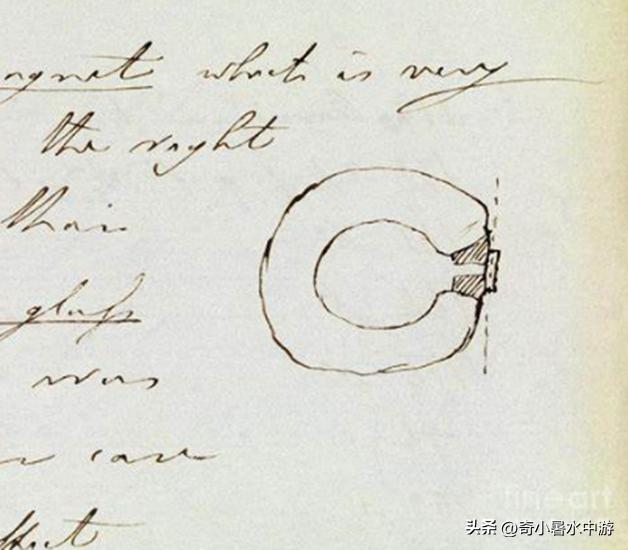 magnet which is very
the right
their
glass
was
case
effect
fine art
头条 @奇小暑水中游